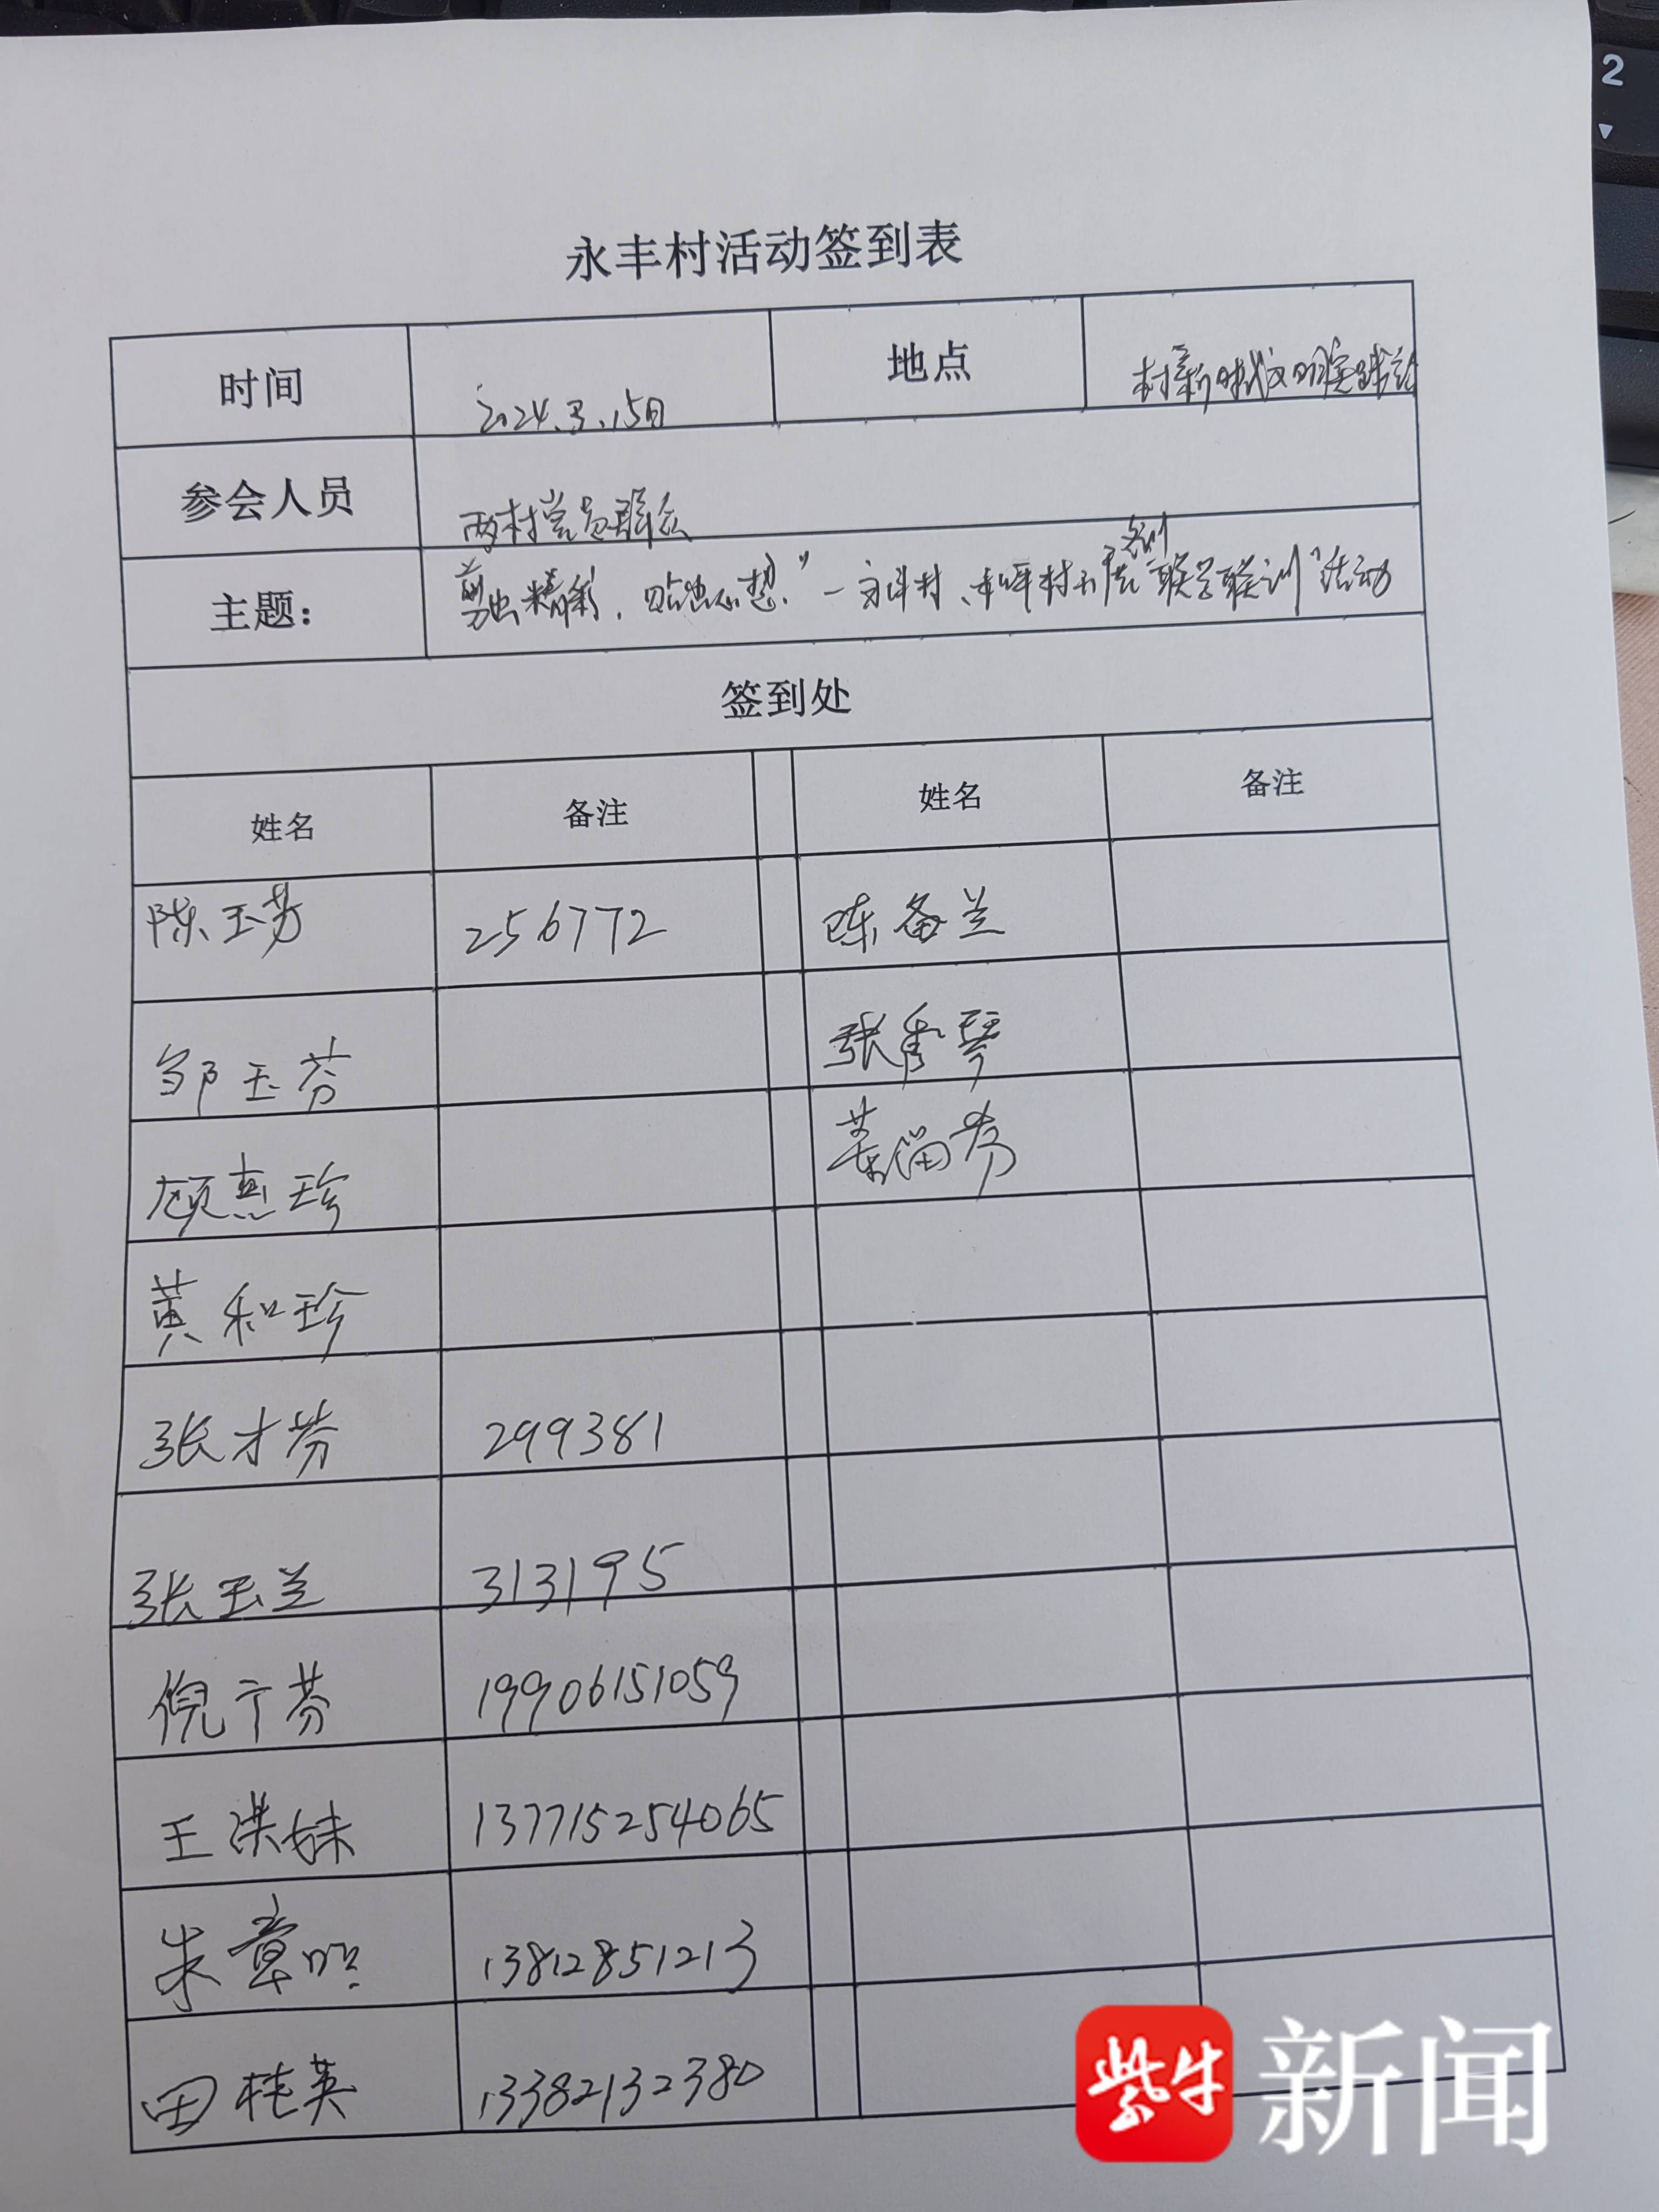 2
永丰村活动签到表
时间 2024.3.15日 地点 村新时代文明实践站
参会人员 两村党员群众
主题： 剪出精彩，
村 "联学联训"活动
签到处
姓名 备注 姓名 备注
陈玉芬 256772 陈备兰
邹玉芬 张秀琴
顾惠珍
黄和珍
张才芬 299381
张玉兰 313195
倪宁芬 19906151059
王洪妹 137715254065
朱章明 13812851213
田桂英 13382132380
紫牛 新闻